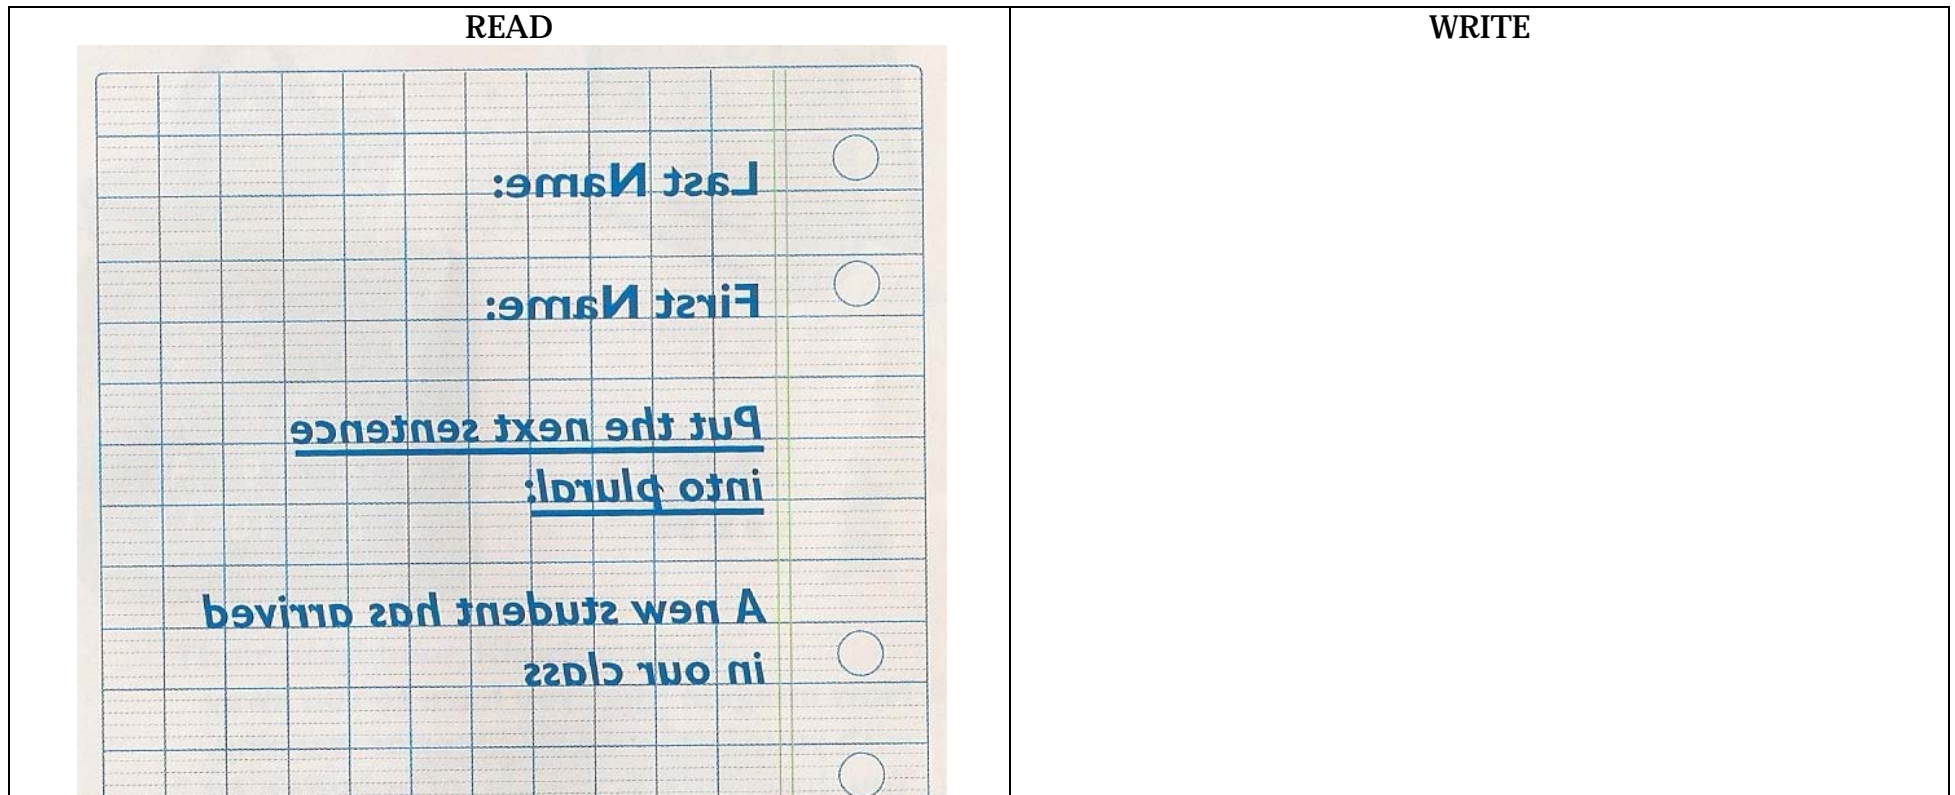 READ
Last Name:
First Name:
Put the next sentence
into plural:
A new student has arrived
in our class
WRITE